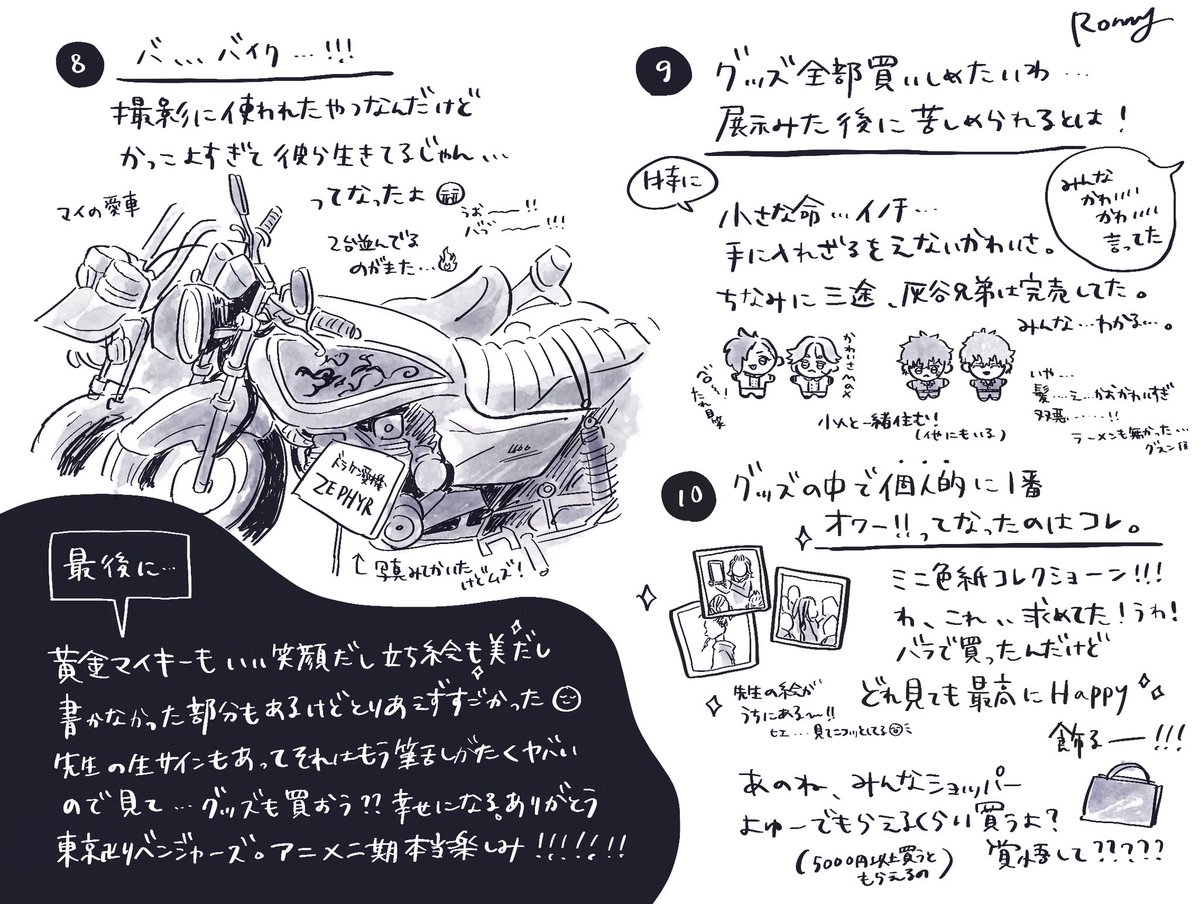 Romy
8
バ、、、バイク…!!!
撮影に使われたやつなんだけど
かっこよすぎて彼ら生きてるじゃん…
ってなったよ
マイの愛車
うぉ〜〜!!
バブ〜〜!!!
2台並んでる
のがまた…
ドラケン愛機
ZEPHYR
↑写真みてかいた
けどムズ!
9
グッズ全部買いしめたいわ…
展示みた後に苦しめられるとは!
特に
小さな命…イノチ…
手に入れざるをえないかわいさ。
みんな
かわいい
かわいい
言ってた
ちなみに三途、灰谷兄弟は完売してた。
みんな…わかる…。
かわいさMAX
小人と一緒住む!
(他にもいる)
いや…
髪…え…かおかわいすぎ
双悪……!!
ラーメンも無かった…
グスン
10
グッズの中で個人的に1番
オワー!!ってなったのはコレ。
ミニ色紙コレクショーン!!!
わ、これ、、求めてた!うわ!
バラで買ったんだけど
どれ見ても最高にHappy
飾るー!!!
先生の絵が
うちにある〜!!
ヒエ…見てニコッとしてる
あのね、みんなショッパー
よゆーでもらえるくらい買うよ?
(5000円以上買うと
もらえるの)
覚悟して?????
最後に…
黄金マイキーもいい笑顔だし立ち絵も美だし
書かなかった部分もあるけどとりあえずすごかった
先生の生サインもあってそれはもう筆舌しがたくヤバい
ので見て…グッズも買おう??幸せになる。ありがとう
東京卍リベンジャーズ。アニメ二期本当楽しみ!!!!!!